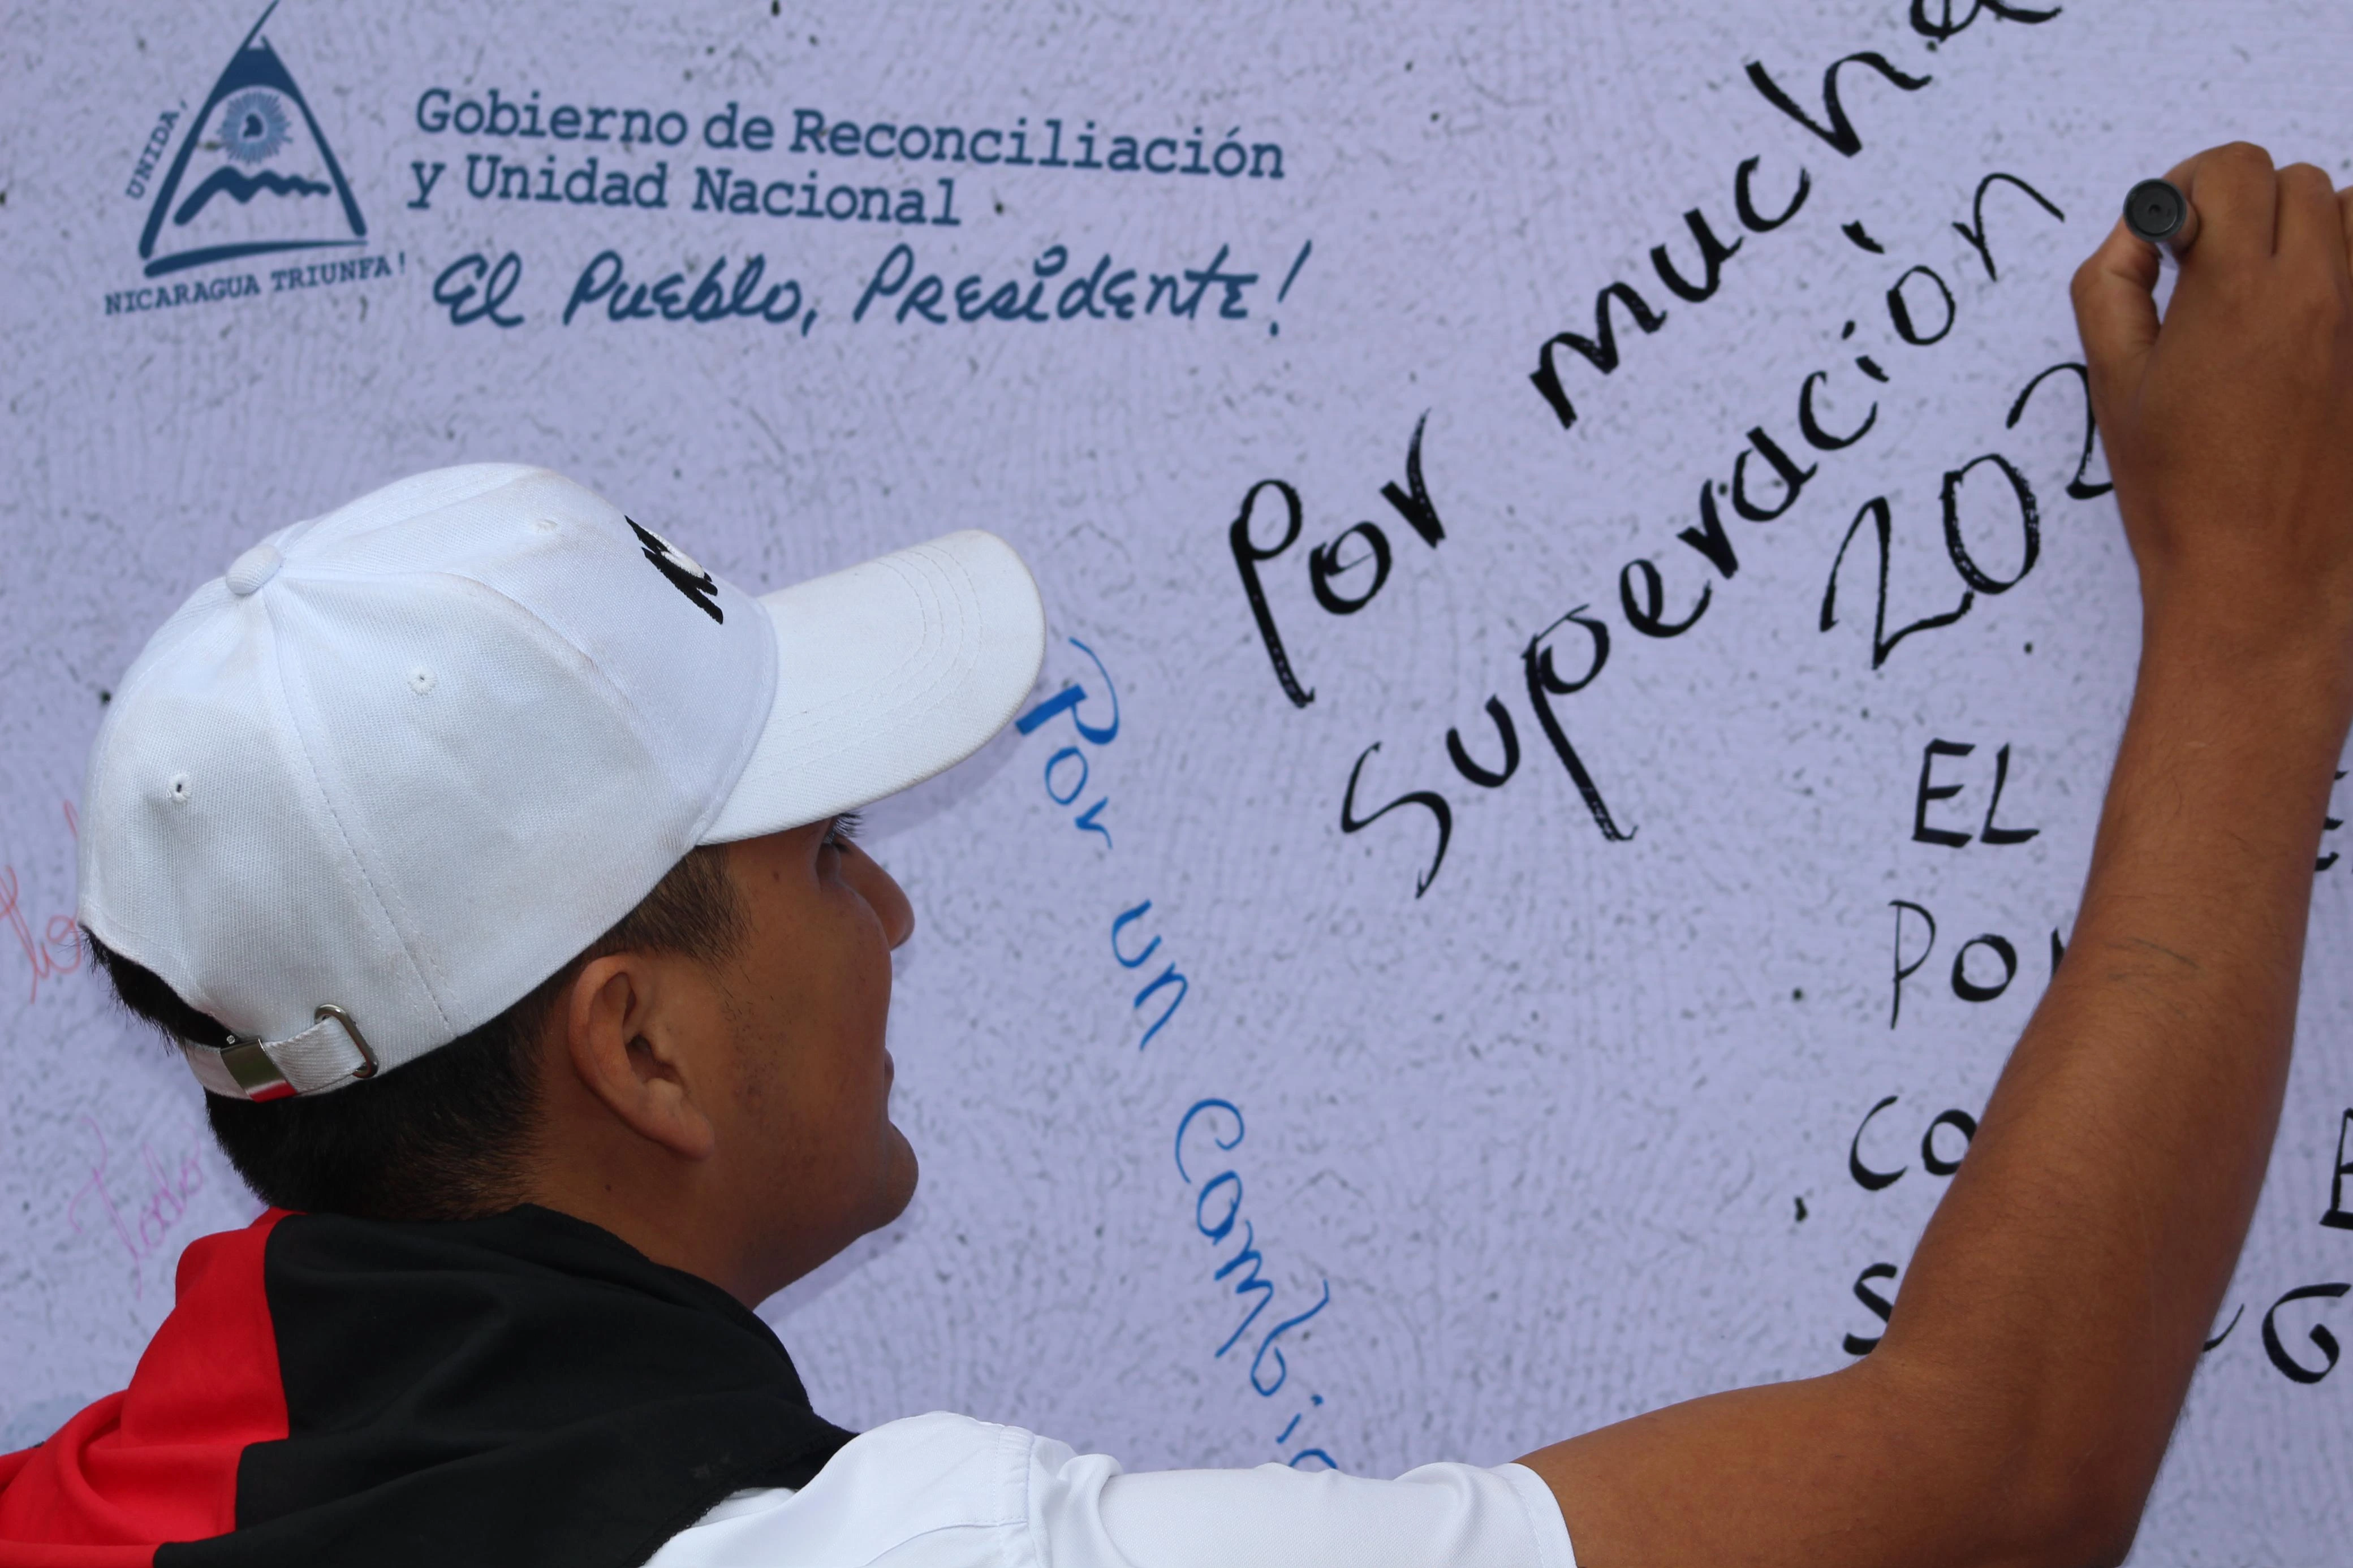 UNIDA,
NICARAGUA TRIUNFA!
Gobierno de Reconciliación
y Unidad Nacional
El Pueblo, Presidente!
Por mucha
superación
202
Por un Cambio
EL
POR
CO
S
Todo